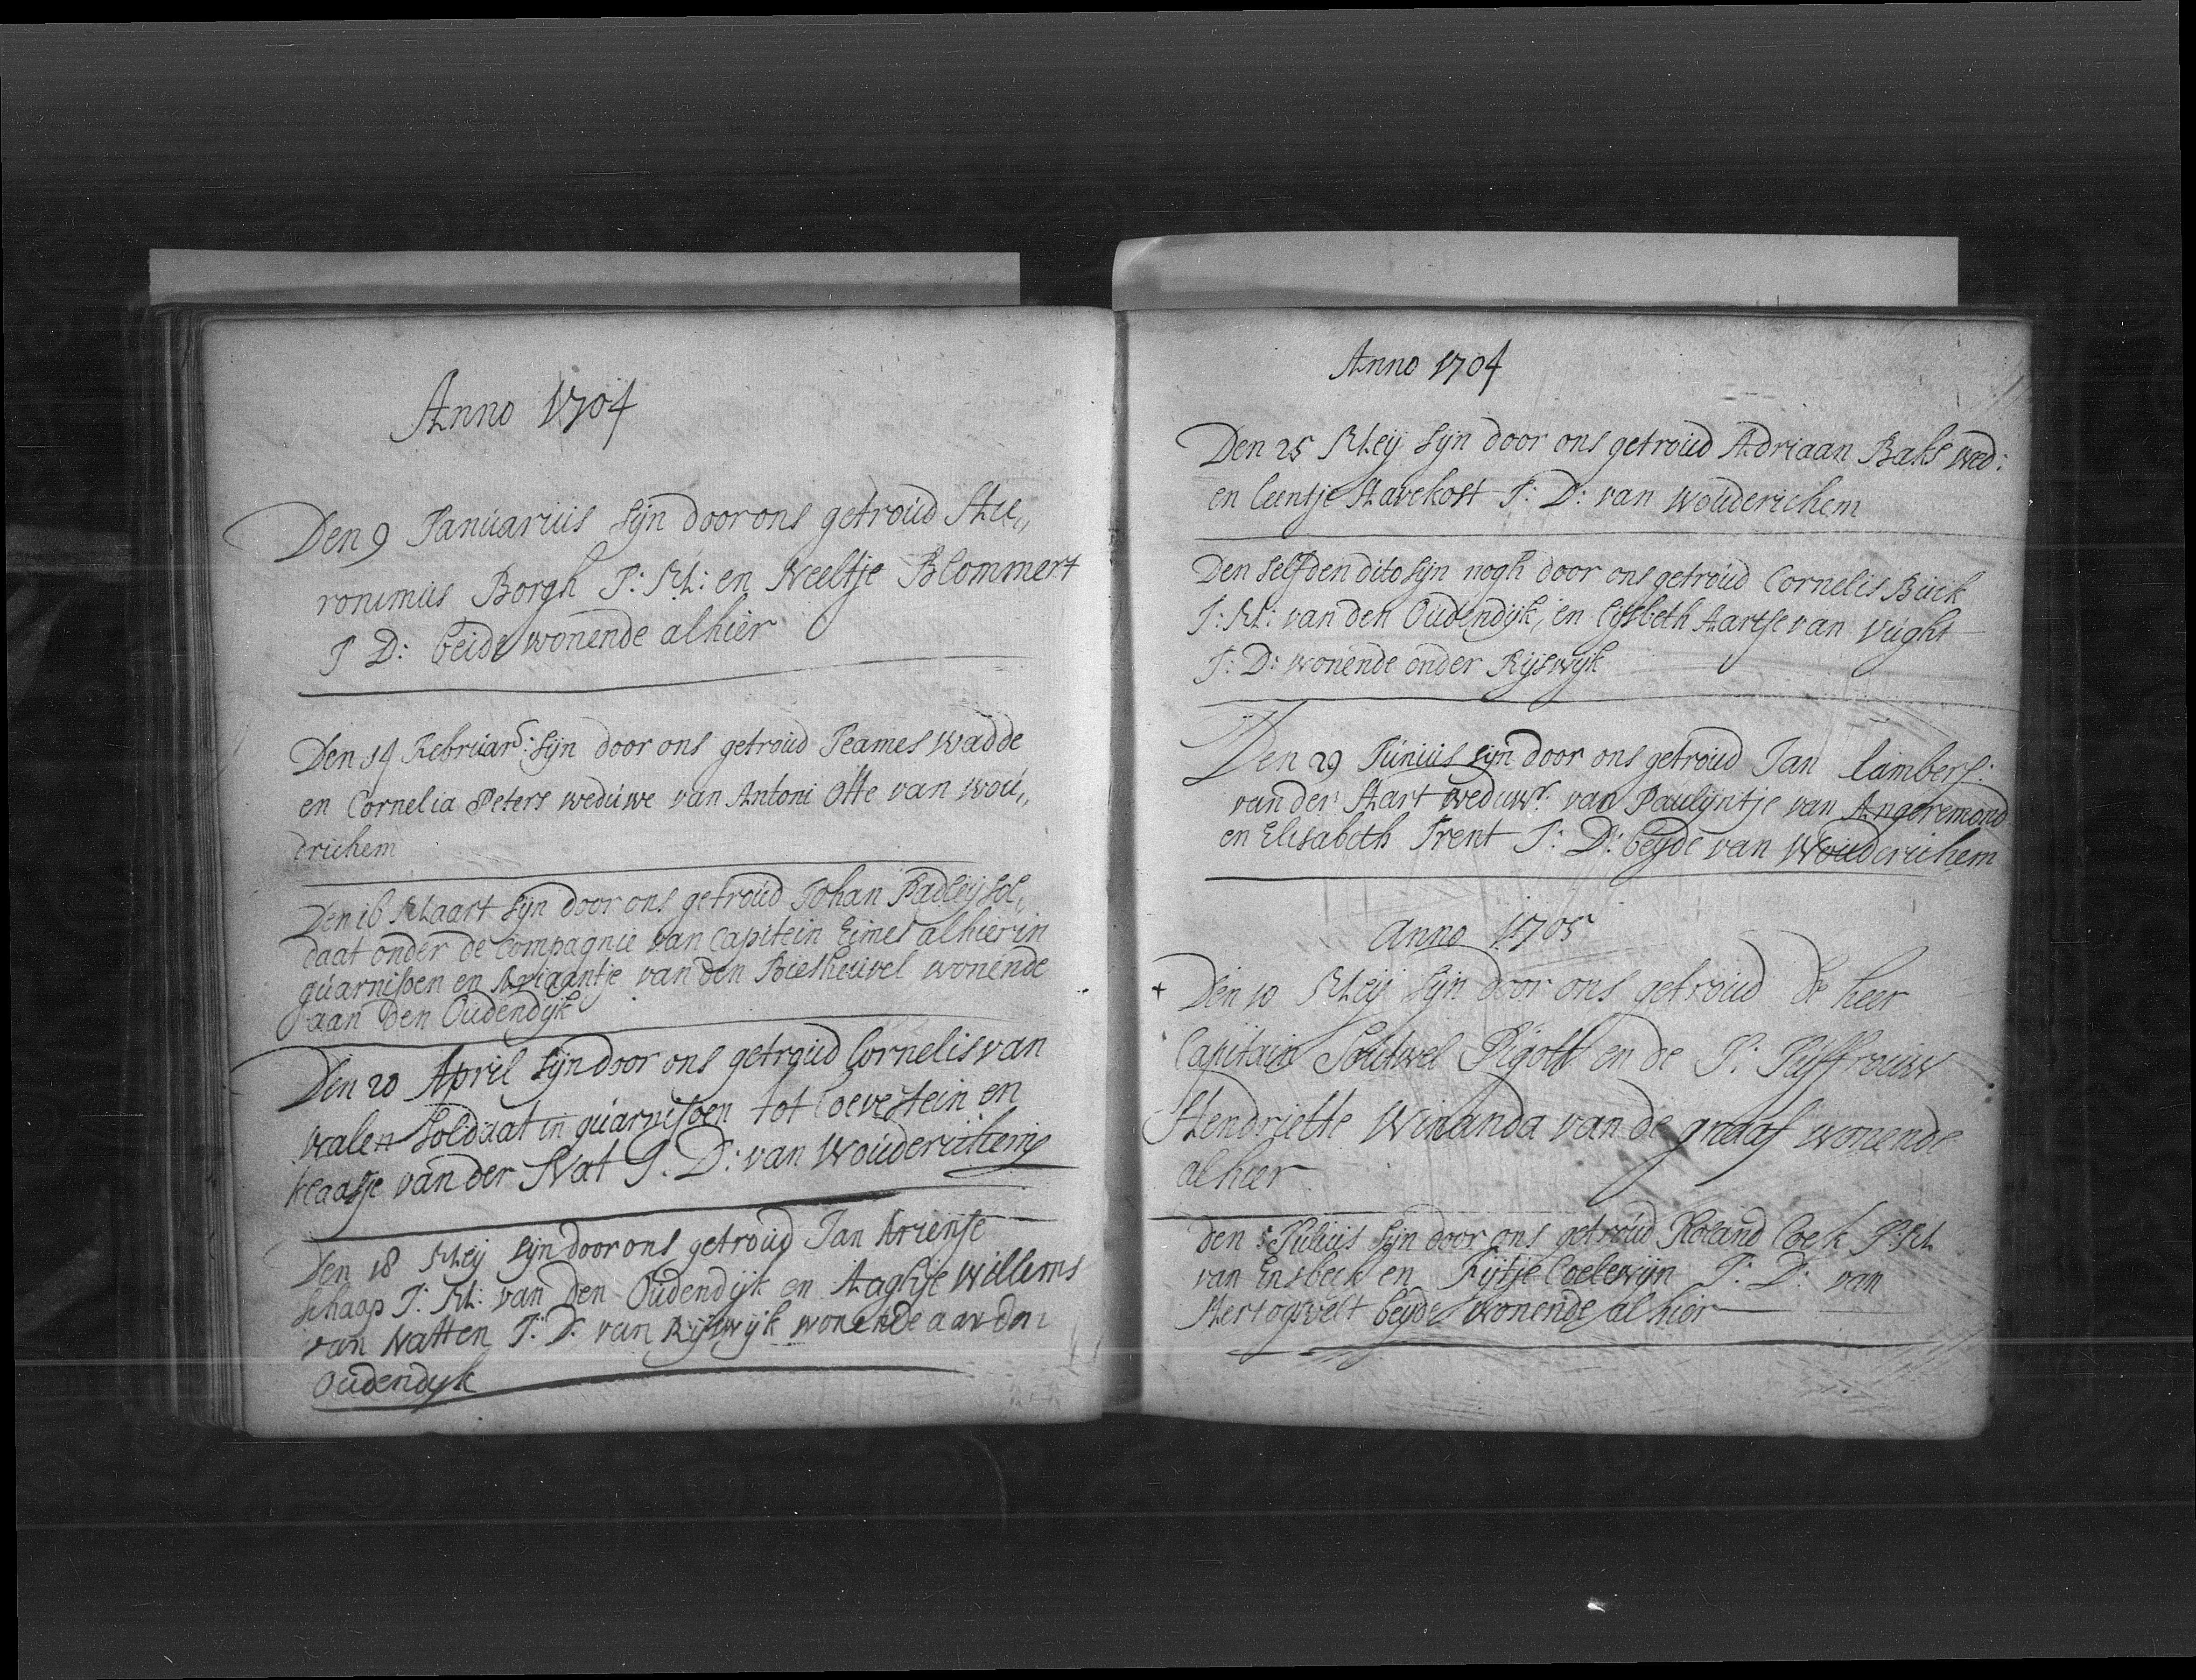 Anno 1704
Den 9 Januarius sijn door ons getroud Hie„
ronimus Borgh J: M: en Neeltje Blommert
J D: beide wonende alhier
Den 14 Februar: sijn door ons getroud Jeames Wadde
en Cornelia Peters weduwe van Antoni Otte van Wou„
drichem
Den 16 Maart sijn door ons getroud Johan Padley sol„
daat onder de Compagnie van Capitein Eimes alhier in
guarnisoen en Ariaantje van den Biesheuvel wonende
aan den Oudendijk
Den 20 April sijn door ons getroud Cornelis van
Walen soldaat in guarnisoen tot Loevestein en
Klaasje van der Nat J. D: van Wouderichem
Den 18 Meij sijn door ons getroud Jan Ariense
Schaap J: M: van den Oudendijk en Aaghje Willems
van Natten J: D: van Rijswijk wonende aan den
Oudendyk
Anno 1704
Den 25 Meij sijn door ons getroud Adriaan Baks wed:
en Leentje Havekost J: D: van Wouderichem
Den selfden dito sijn nogh door ons getroud Cornelis Buck
J: M: van den Oudendijk, en Lijsbeth Aartse van Vught
J: D: wonende onder Rijswijk
Den 29 Junius sijn door ons getroud Jan Lambers:
van der Aart weduwr: van Paulijntje van Angeremond
en Elisabeth Trent J: D: beyde van Wouderichem
Anno 1705
+ Den 10 Meij sijn door ons getroud De heer
Capitain Soutwel Pigott en de J: Juffrouw
Hendriette Winanda van de graaf wonende
alhier
den 5 Julius sijn door ons getroud Roland Coek J: M
van Ensbeck en Fijtje Coelewijn J: D: van
Hertogsvelt beyde wonende alhier